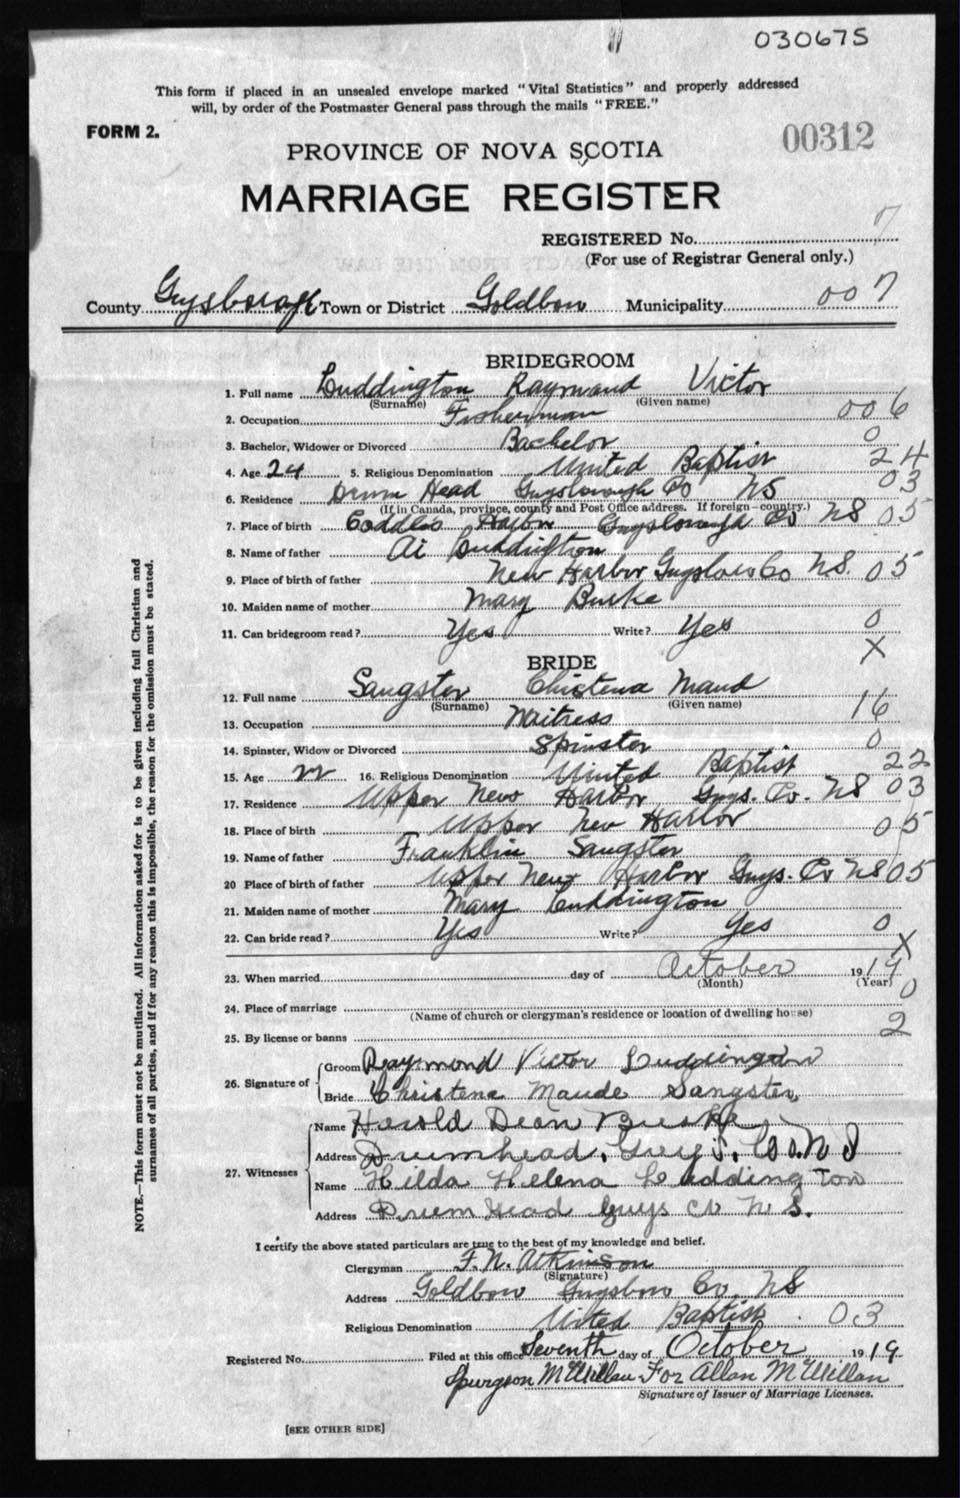 030675
This form if placed in an unsealed envelope marked "Vital Statistics" and properly addressed
will, by order of the Postmaster General pass through the mails "FREE."
FORM 2.
00312
PROVINCE OF NOVA SCOTIA
MARRIAGE REGISTER
REGISTERED No. 7
(For use of Registrar General only.)
County Guysborough Town or District Goldboro Municipality 007
BRIDEGROOM
1. Full name Luddington Raymond Victor
(Surname) (Given name)
2. Occupation Fisherman 006
3. Bachelor, Widower or Divorced Bachelor 0
4. Age 24 5. Religious Denomination United Baptist 24
6. Residence Drum Head Guysborough Co NS 03
(If in Canada, province, county and Post Office address. If foreign—country.)
7. Place of birth Coddles Harbor Guysborough Co NS 05
8. Name of father Ai Luddington
9. Place of birth of father New Harbor Guysboro Co NS. 05
10. Maiden name of mother Mary Burke
11. Can bridegroom read? Yes Write? Yes 0
X
BRIDE
12. Full name Sangster Christena Maud
(Surname) (Given name)
13. Occupation Waitress 16
14. Spinster, Widow or Divorced Spinster 0
15. Age 22 16. Religious Denomination United Baptist 22
17. Residence Upper New Harbor Guys. Co. NS 03
18. Place of birth Upper New Harbor 05
19. Name of father Franklin Sangster
20 Place of birth of father Upper New Harbor Guys. Co NS 05
21. Maiden name of mother Mary Luddington
22. Can bride read? Yes Write? Yes 0
X
23. When married day of October 1919
(Month) (Year)
0
24. Place of marriage
(Name of church or clergyman's residence or location of dwelling house)
25. By license or banns 2
26. Signature of Groom Raymond Victor Luddington
Bride Christena Maude Sangster
27. Witnesses Name Harold Dean Burke
Address Drumhead, Guys. Co. N S
Name Hilda Helena Luddington
Address Drum Head Guys Co N. S.
I certify the above stated particulars are true to the best of my knowledge and belief.
Clergyman F. N. Atkinson
(Signature)
Address Goldboro Guysboro Co. NS
Religious Denomination United Baptist. 03
Registered No. Filed at this office Seventh day of October 1919
Spurgeon McMillan For Allan McMillan
Signature of Issuer of Marriage Licenses.
[SEE OTHER SIDE]
NOTE.—This form must not be mutilated. All information asked for is to be given including full Christian and
surnames of all parties, and if for any reason this is impossible, the reason for the omission must be stated.